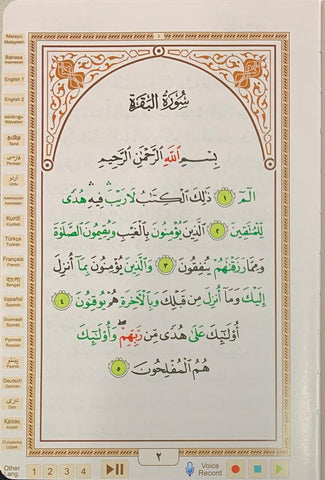 سُورَةُ البَقَرَةِ
بِسْمِ اللَّهِ الرَّحْمَٰنِ الرَّحِيمِ
الٓمٓ ١ ذَٰلِكَ الْكِتَٰبُ لَا رَيْبَ ۛ فِيهِ ۛ هُدًى
لِلْمُتَّقِينَ ٢ الَّذِينَ يُؤْمِنُونَ بِالْغَيْبِ وَيُقِيمُونَ الصَّلَوٰةَ
وَمِمَّا رَزَقْنَٰهُمْ يُنفِقُونَ ٣ وَالَّذِينَ يُؤْمِنُونَ بِمَآ أُنزِلَ
إِلَيْكَ وَمَآ أُنزِلَ مِن قَبْلِكَ وَبِالْءَاخِرَةِ هُمْ يُوقِنُونَ ٤
أُو۟لَٰٓئِكَ عَلَىٰ هُدًى مِّن رَّبِّهِمْ ۖ وَأُو۟لَٰٓئِكَ
هُمُ الْمُفْلِحُونَ ٥
٢
Melayu
Malaysian
Bahasa
Indonesian
English 1
English 2
Malayalam
தமிழ்
Tamil
فارسی
Persian
اردو
Urdu
Azerbaijani
Kurdî
Kurdish
Türkçe
Turkish
Français
French
বাংলা
Bengali
Español
Spanish
Soomaali
Somali
Русский
Russian
پښتو
Pashto
Deutsch
German
دری
Dari
Қазақ
Kazak
O'zbekcha
Uzbek
Other
Lang.
1 2 3 4
Voice
Record